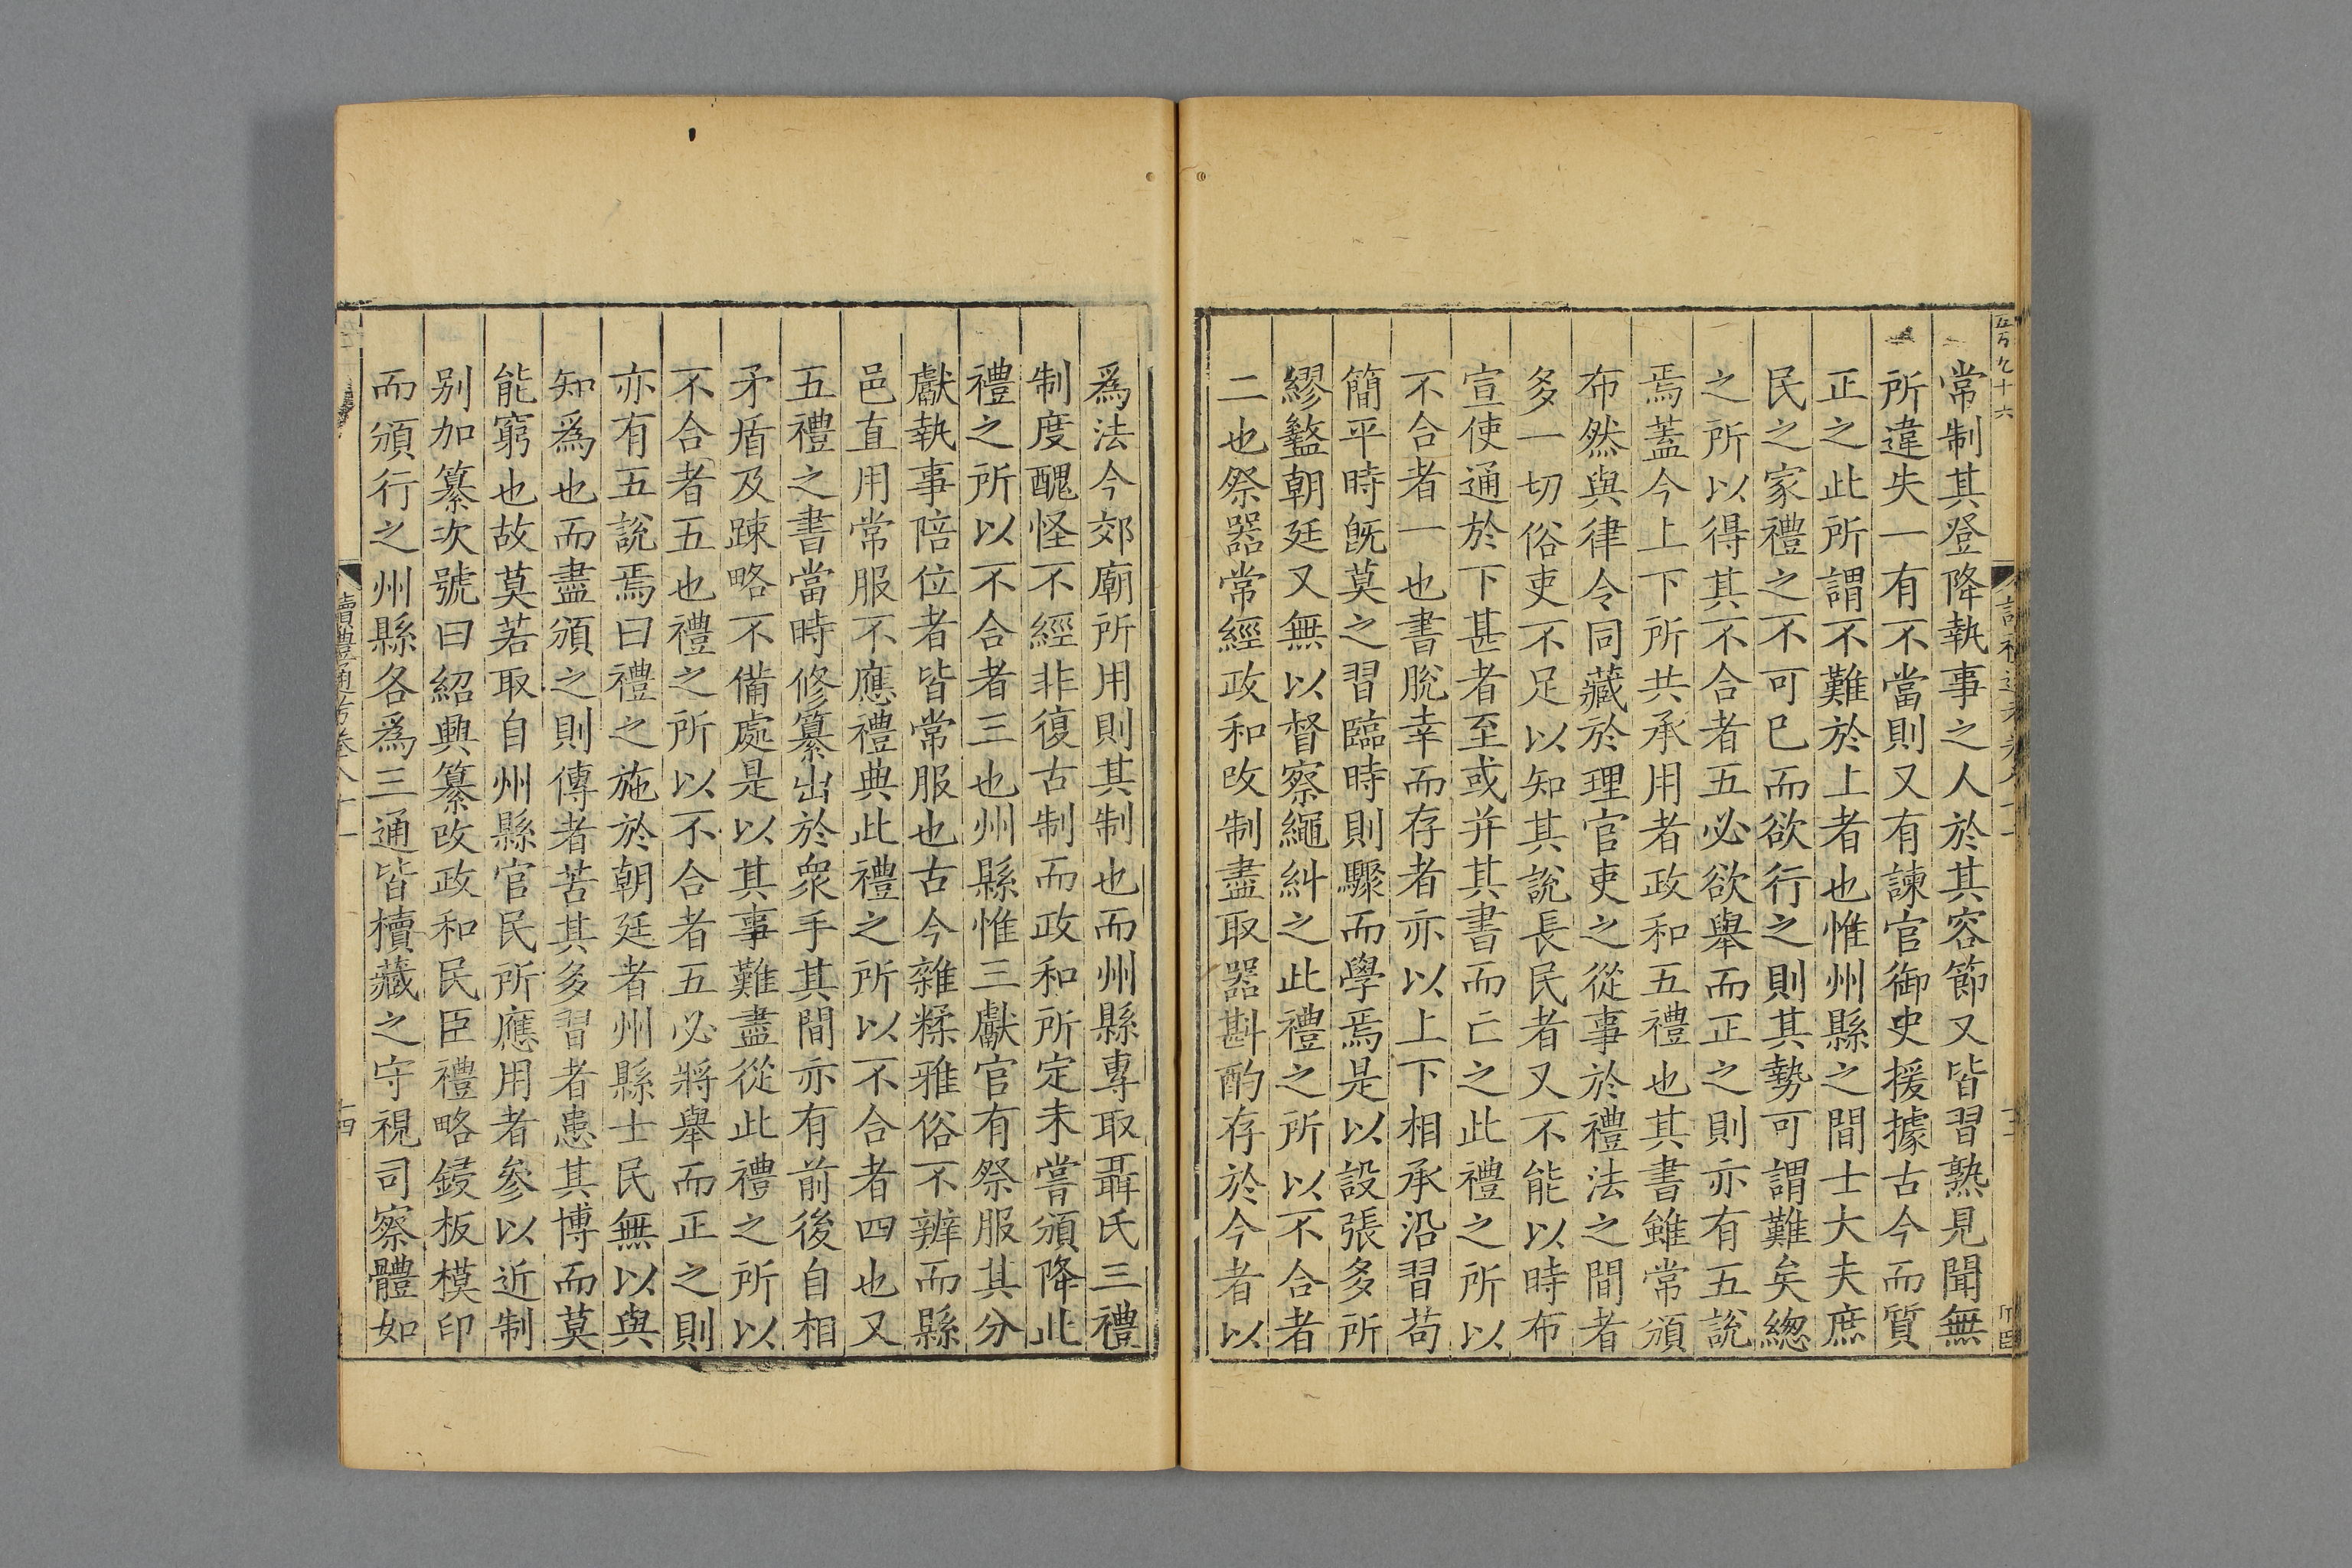 常制其登降執事之人於其容節又皆習熟見聞無
所違失一有不當則又有諫官御史援據古今而質
正之此所謂不難於上者也惟州縣之間士大夫庶
民之家禮之不可已而欲行之則其勢可謂難矣緫
之所以得其不合者五必欲舉而正之則亦有五說
焉蓋今上下所共承用者政和五禮也其書雖常頒
布然與律令同藏於理官吏之從事於禮法之間者
多一切俗吏不足以知其說長民者又不能以時布
宣使通於下甚者至或并其書而亡之此禮之所以
不合者一也書脫幸而存者亦以上下相承沿習苟
簡平時旣莫之習臨時則驟而學焉是以設張多所
繆盭朝廷又無以督察繩糾之此禮之所以不合者
二也祭器常經政和改制盡取器斟酌存於今者以
爲法今郊廟所用則其制也而州縣專取聶氏三禮
制度醜怪不經非復古制而政和所定未嘗頒降此
禮之所以不合者三也州縣惟三獻官有祭服其分
獻執事陪位者皆常服也古今雜糅雅俗不辨而縣
邑直用常服不應禮典此禮之所以不合者四也又
五禮之書當時修纂出於衆手其間亦有前後自相
矛盾及踈略不備處是以其事難盡從此禮之所以
不合者五也禮之所以不合者五必將舉而正之則
亦有五說焉曰禮之施於朝廷者州縣士民無以與
知爲也而盡頒之則傳者苦其多習者患其博而莫
能窮也故莫若取自州縣官民所應用者參以近制
别加纂次號曰紹興纂改政和民臣禮略鋟板模印
而頒行之州縣各爲三通皆櫝藏之守視司察體如
讀禮通考卷八十一
十四